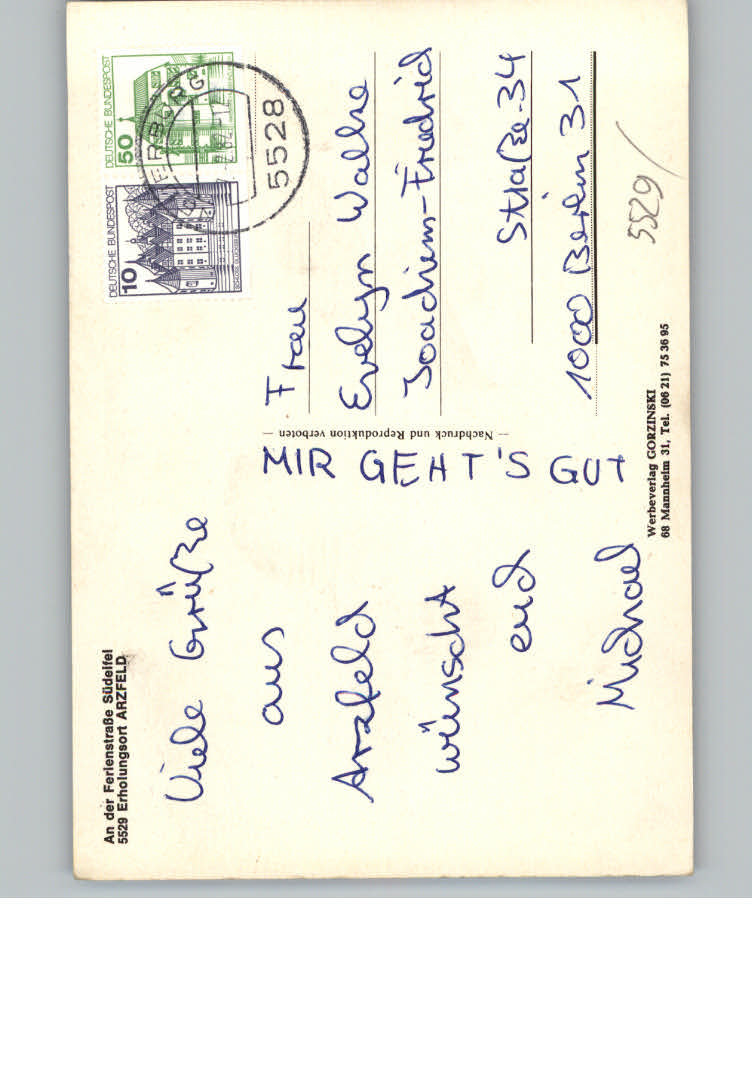 An der Ferienstraße Südeifel
5529 Erholungsort ARZFELD
Viele Grüße
aus
Arzfeld
wünscht
euch
Michael
MIR GEHT'S GUT
— Nachdruck und Reproduktion verboten —
DEUTSCHE BUNDESPOST
10
DEUTSCHE BUNDESPOST
50
5528
Frau
Evelyn
Joachim-Friedrich
Straße 34
1000 Berlin 31
5529
Werbeverlag GORZINSKI
68 Mannheim 31, Tel. (06 21) 75 36 95